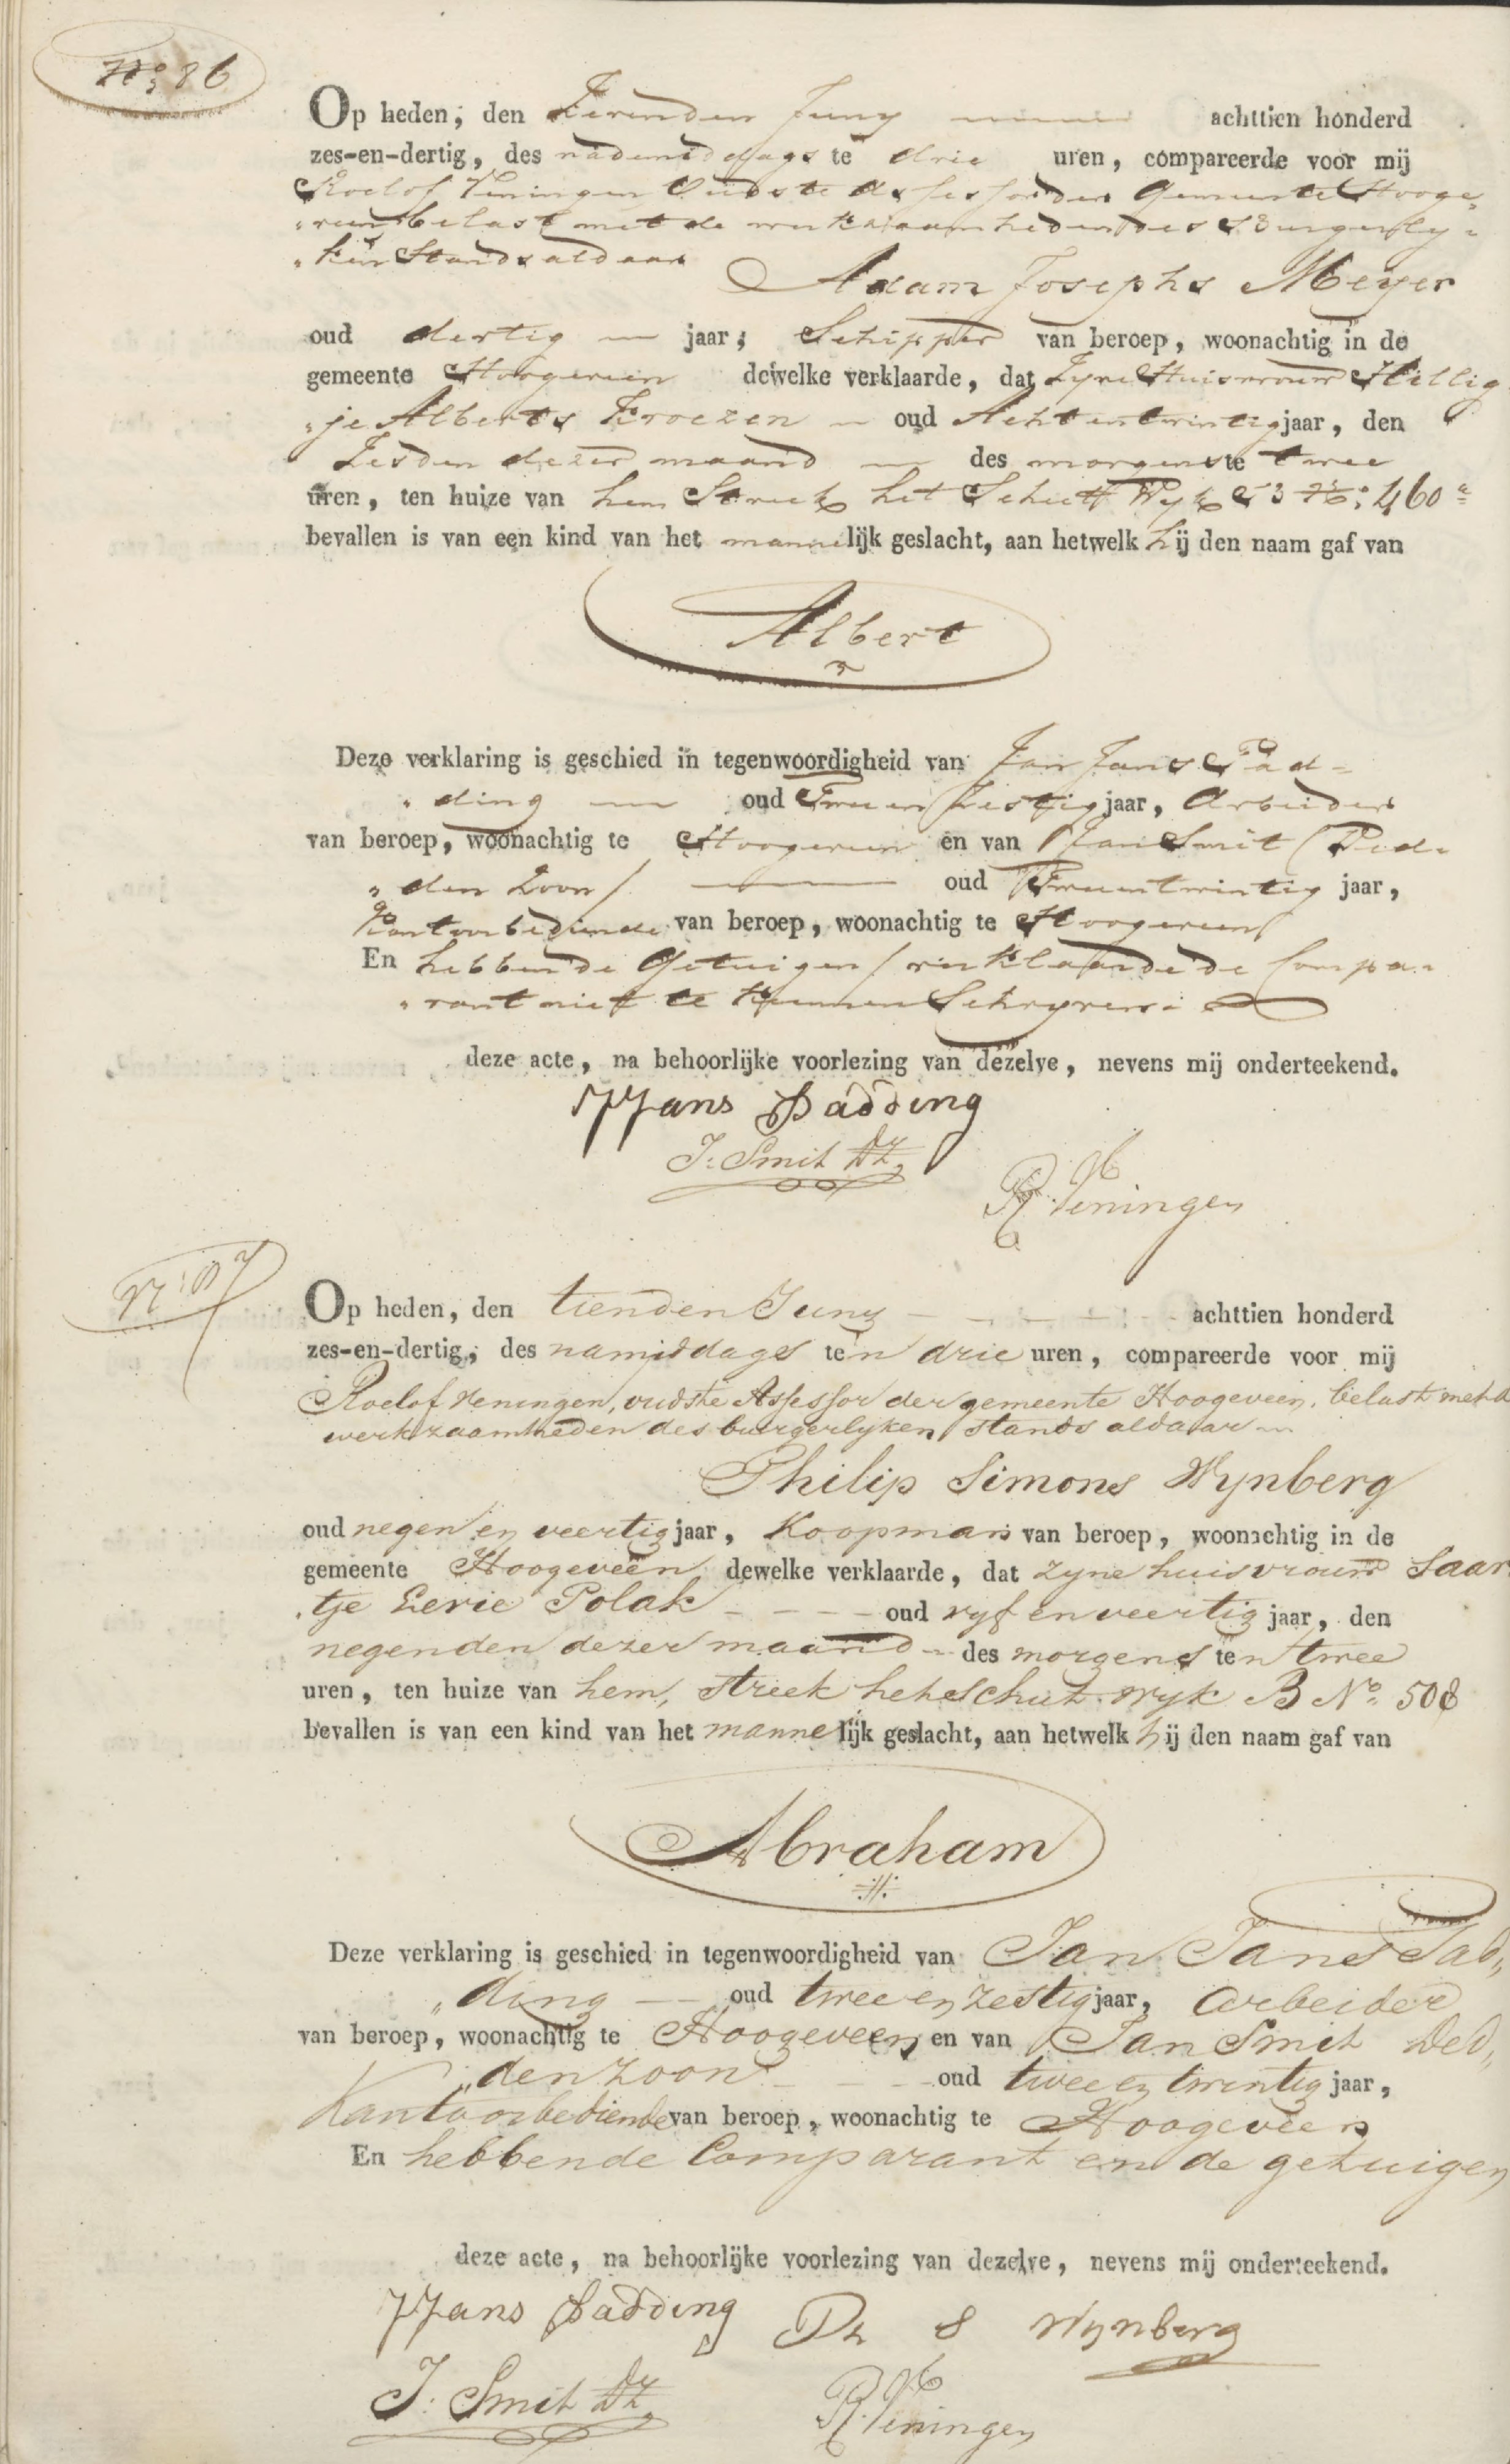 No. 86
Op heden, den Zevenden Juny achttien honderd
zes-en-dertig, des nademiddags te drie uren, compareerde voor mij
Roelof Veningen Oudste Assessor der Gemeente Hooge„
„veen belast met de werkzaamheden des Burgerly„
„ken Stands aldaar Adam Josephs Meyer
oud dertig jaar, Schipper van beroep, woonachtig in de
gemeente Hoogeveen dewelke verklaarde, dat Zyne Huisvrouw Hillig
„je Alberts Kroezen oud Achtentwintig jaar, den
Zesden dezer maand des morgens te twee
uren, ten huize van hem Streek het Schutt Wyk B No. 460 a
bevallen is van een kind van het mannelijk geslacht, aan hetwelk hij den naam gaf van
Albert
Deze verklaring is geschied in tegenwoordigheid van Jan Jans Pad„
„ding oud Twee en zestig jaar, Arbeider
van beroep, woonachtig te Hoogeveen en van Jan Smit (Ded„
„den Zoon) oud Tweentwintig jaar,
Kantoorbediende van beroep, woonachtig te Hoogeveen
En hebben de Getuigen / verklaarde de Compa„
„rant niet te kunnen Schryven
deze acte, na behoorlijke voorlezing van dezelve, nevens mij onderteekend.
J Jans Padding
J: Smit DZ
R H Veningen
N: 87
Op heden, den tienden Juny achttien honderd
zes-en-dertig, des namiddags ten drie uren, compareerde voor mij
Roelof Veningen, oudste Assessor der gemeente Hoogeveen, belast met de
werkzaamheden des burgerlyken stands aldaar
Philip Simons Wynberg
oud negen en veertig jaar, Koopman van beroep, woonachtig in de
gemeente Hoogeveen dewelke verklaarde, dat zyne huisvrouw Saar„
„tje Levie Polak oud vyf en veertig jaar, den
negenden dezer maand des morgens ten twee
uren, ten huize van hem, streek het Schut wyk B No. 508
bevallen is van een kind van het mannelijk geslacht, aan hetwelk hij den naam gaf van
Abraham
Deze verklaring is geschied in tegenwoordigheid van Jan Jans Pad„
„ding oud twee en zestig jaar, Arbeider
van beroep, woonachtig te Hoogeveen en van Jan Smit Ded„
„denzoon oud twee en twintig jaar,
Kantoorbediende van beroep, woonachtig te Hoogeveen
En hebbende Comparant en de getuigen
deze acte, na behoorlijke voorlezing van dezelve, nevens mij onderteekend.
J Jans Padding Ph S Wynberg
J: Smit DZ R H Veningen